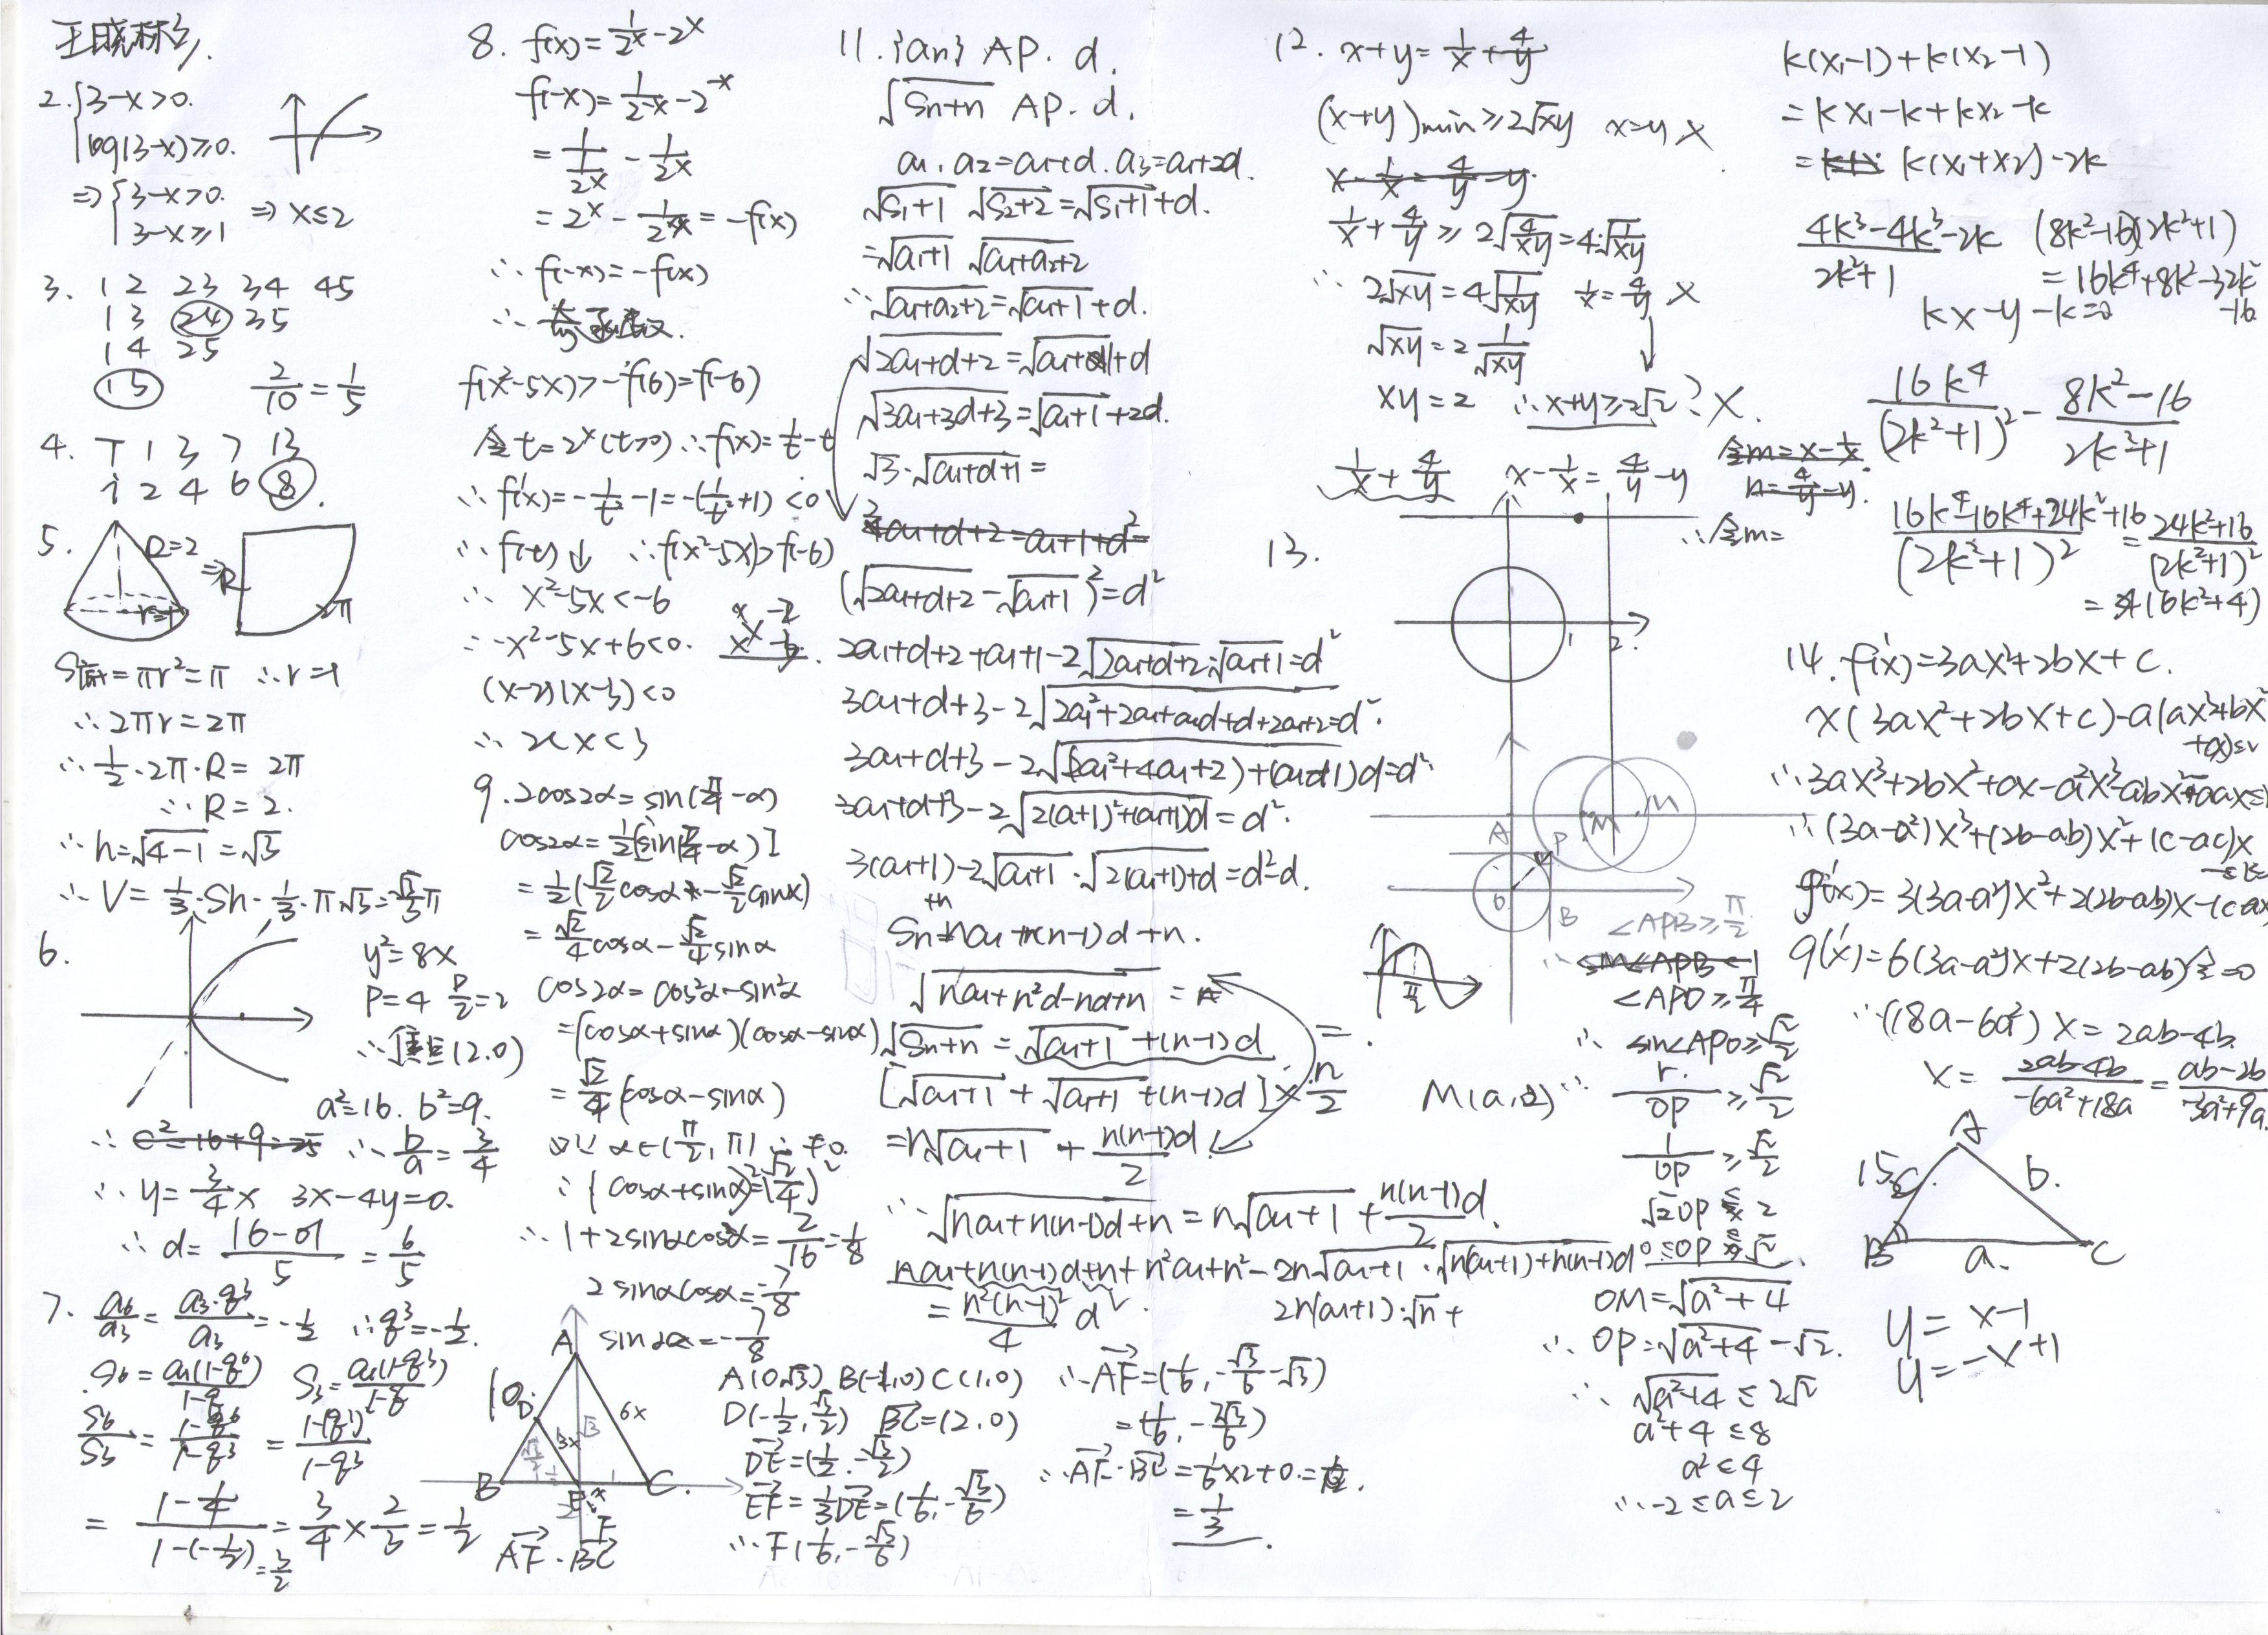 2. {3-x>0.
log(3-x)≥0.
⇒{3-x>0.
3-x≥1 ⇒ x≤2
3. 1 2 23 34 45
1 3 24 35
1 4 25
15 2/10=1/5
4. T 1 3 7 13
i 2 4 6 8.
5. R=2 ⇒ R
r=1 2π
=πr²=π ∴r=1
∴2πr=2π
∴1/2·2π·R=2π
∴R=2.
∴h=√(4-1)=√3
∴V=1/3·Sh=1/3·π√3=√3/3π
6. y²=8x
P=4 P/2=2
∴焦点(2.0)
a²=16. b²=9.
∴c²=16+9=25 ∴b/a=3/4
∴y=3/4x 3x-4y=0.
∴d=|6-0|/5=6/5
7. a6/a3=a3·q³/a3=-1/2 ∴q³=-1/2.
S6=a1(1-q⁶)/1-q S3=a1(1-q³)/1-q
S6/S3=1-q⁶/1-q³=1-(q³)²/1-q³
=1-1/4/1-(-1/2)=3/4×2/3=1/2
=3/2
8. f(x)=1/2ˣ-2ˣ
f(-x)=1/2⁻ˣ-2⁻ˣ
=1/(1/2ˣ)-1/2ˣ
=2ˣ-1/2ˣ=-f(x)
∴f(-x)=-f(x)
∴奇函数.
f(x²-5x)>-f(6)=f(-6)
令t=2ˣ(t>0)∴f(x)=1/t-t
∴f'(x)=-1/t²-1=-(1/t²+1)<0
∴f(t)↓ ∴f(x²-5x)>f(-6)
∴x²-5x<-6
∴x²-5x+6<0.
(x-2)(x-3)<0
∴2<x<3
9. 2cos2α=sin(π/4-α)
cos2α=1/2[sin(π/4-α)]
=1/2(√2/2cosα-√2/2sinα)
=√2/4cosα-√2/4sinα
cos2α=cos²α-sin²α
=(cosα+sinα)(cosα-sinα)
=√2/4(cosα-sinα)
又∵α∈(π/2,π) ∴≠0.
∴(cosα+sinα)²=(√2/4)²
∴1+2sinαcosα=2/16=1/8
2sinαcosα=-7/8
sin2α=-7/8
10. A
D 6x
3x √3
B E x C.
F
AF·BC
A(0√3) B(-1,0) C(1,0)
D(-1/2,√3/2) BC=(2,0)
DE=(1/2,-√3/2)
EF=1/3DE=(1/6,-√3/6)
∴F(1/6,-√3/6)
∴AF=(1/6,-√3/6-√3)
=(1/6,-7√3/6)
∴AF·BC=1/6×2+0
=1/3.
11. {an} AP. d.
√(Sn+n) AP. d.
a1. a2=a1+d. a3=a1+2d.
√(S1+1) √(S2+2)=√(S1+1)+d.
=√(a1+1) √(a1+a2+2)
∴√(a1+a2+2)=√(a1+1)+d.
√(2a1+d+2)=√(a1+1)+d
√(3a1+3d+3)=√(a1+1)+2d.
√3·√(a1+d+1)=
(√(2a1+d+2)-√(a1+1))²=d²
2a1+d+2+a1+1-2√(2a1+d+2)·√(a1+1)=d²
3a1+d+3-2√(2a1²+2a1+a1d+d+2a1+2)=d².
3a1+d+3-2√((2a1²+4a1+2)+(a1+1)d)=d².
3a1+d+3-2√(2(a+1)²+(a1+1)d)=d².
3(a1+1)-2√(a1+1)·√(2(a1+1)+d)=d²-d.
Sn+n=na1+n(n-1)d+n.
√(na1+n²d-nd+n)=
√(Sn+n)=√(a1+1)+(n-1)d
[√(a1+1)+√(a1+1)+(n-1)d]×n/2
=n√(a1+1)+n(n-1)d/2
∴√(na1+n(n-1)d+n)=n√(a1+1)+n(n-1)d/2.
na1+n(n-1)d+n+n²a1+n²-2n√(a1+1)·√(n(a1+1)+n(n-1)d)
=n²(n-1)²/4 d². 2n(a1+1)·√n+
12. x+y=1/x+4/y
(x+y)min≥2√xy x=y ×
x-1/x=4/y-y.
1/x+4/y≥2√(4/xy)=4√(1/xy)
∴2√xy=4√(1/xy) 1/x=4/y ×
√xy=2 1/√xy
xy=2 ∴x+y≥2√2? ×.
1/x+4/y x-1/x=4/y-y
令m=x-1/x.
n=4/y-y.
∴令m=
13.
1 2.
A P M n
O B
∠APB≥π/2
∴sin∠APB<1
∠APO≥π/4
∴sin∠APO≥√2/2
M(a,2)∴r./OP≥√2/2
1/OP≥√2/2
√2OP≤2
0≤OP≤√2.
OM=√(a²+4)
∴OP=√(a²+4)-√2.
∴√(a²+4)≤2√2
a²+4≤8
a²≤4
∴-2≤a≤2
k(x1-1)+k(x2-1)
=kx1-k+kx2-k
=k(x1+x2)-2k
4k³-4k³-2k/2k²+1 (8k²-16)(2k²+1)
=16k⁴+8k²-32k²
-16
kx-y-k=0
16k⁴/(2k²+1)²-8k²-16/2k²+1
16k⁴-16k⁴+24k²+16/(2k²+1)²=24k²+16/(2k²+1)²
=4(6k²+4)
14. f'(x)=3ax²+2bx+c.
x(3ax²+2bx+c)-a(ax³+bx²
+cx)≤0
∴3ax³+2bx²+cx-a²x³-abx²-acx≤0
∴(3a-a²)x³+(2b-ab)x²+(c-ac)x
g'(x)=3(3a-a²)x²+2(2b-ab)x-(c-ac)
g'(x)=6(3a-a²)x+2(2b-ab)令=0
∴(18a-6a²)x=2ab-4b.
x=2ab-4b/-6a²+18a=ab-2b/-3a²+9a.
15. A
c. b.
B a. C
y=x-1
y=-x+1